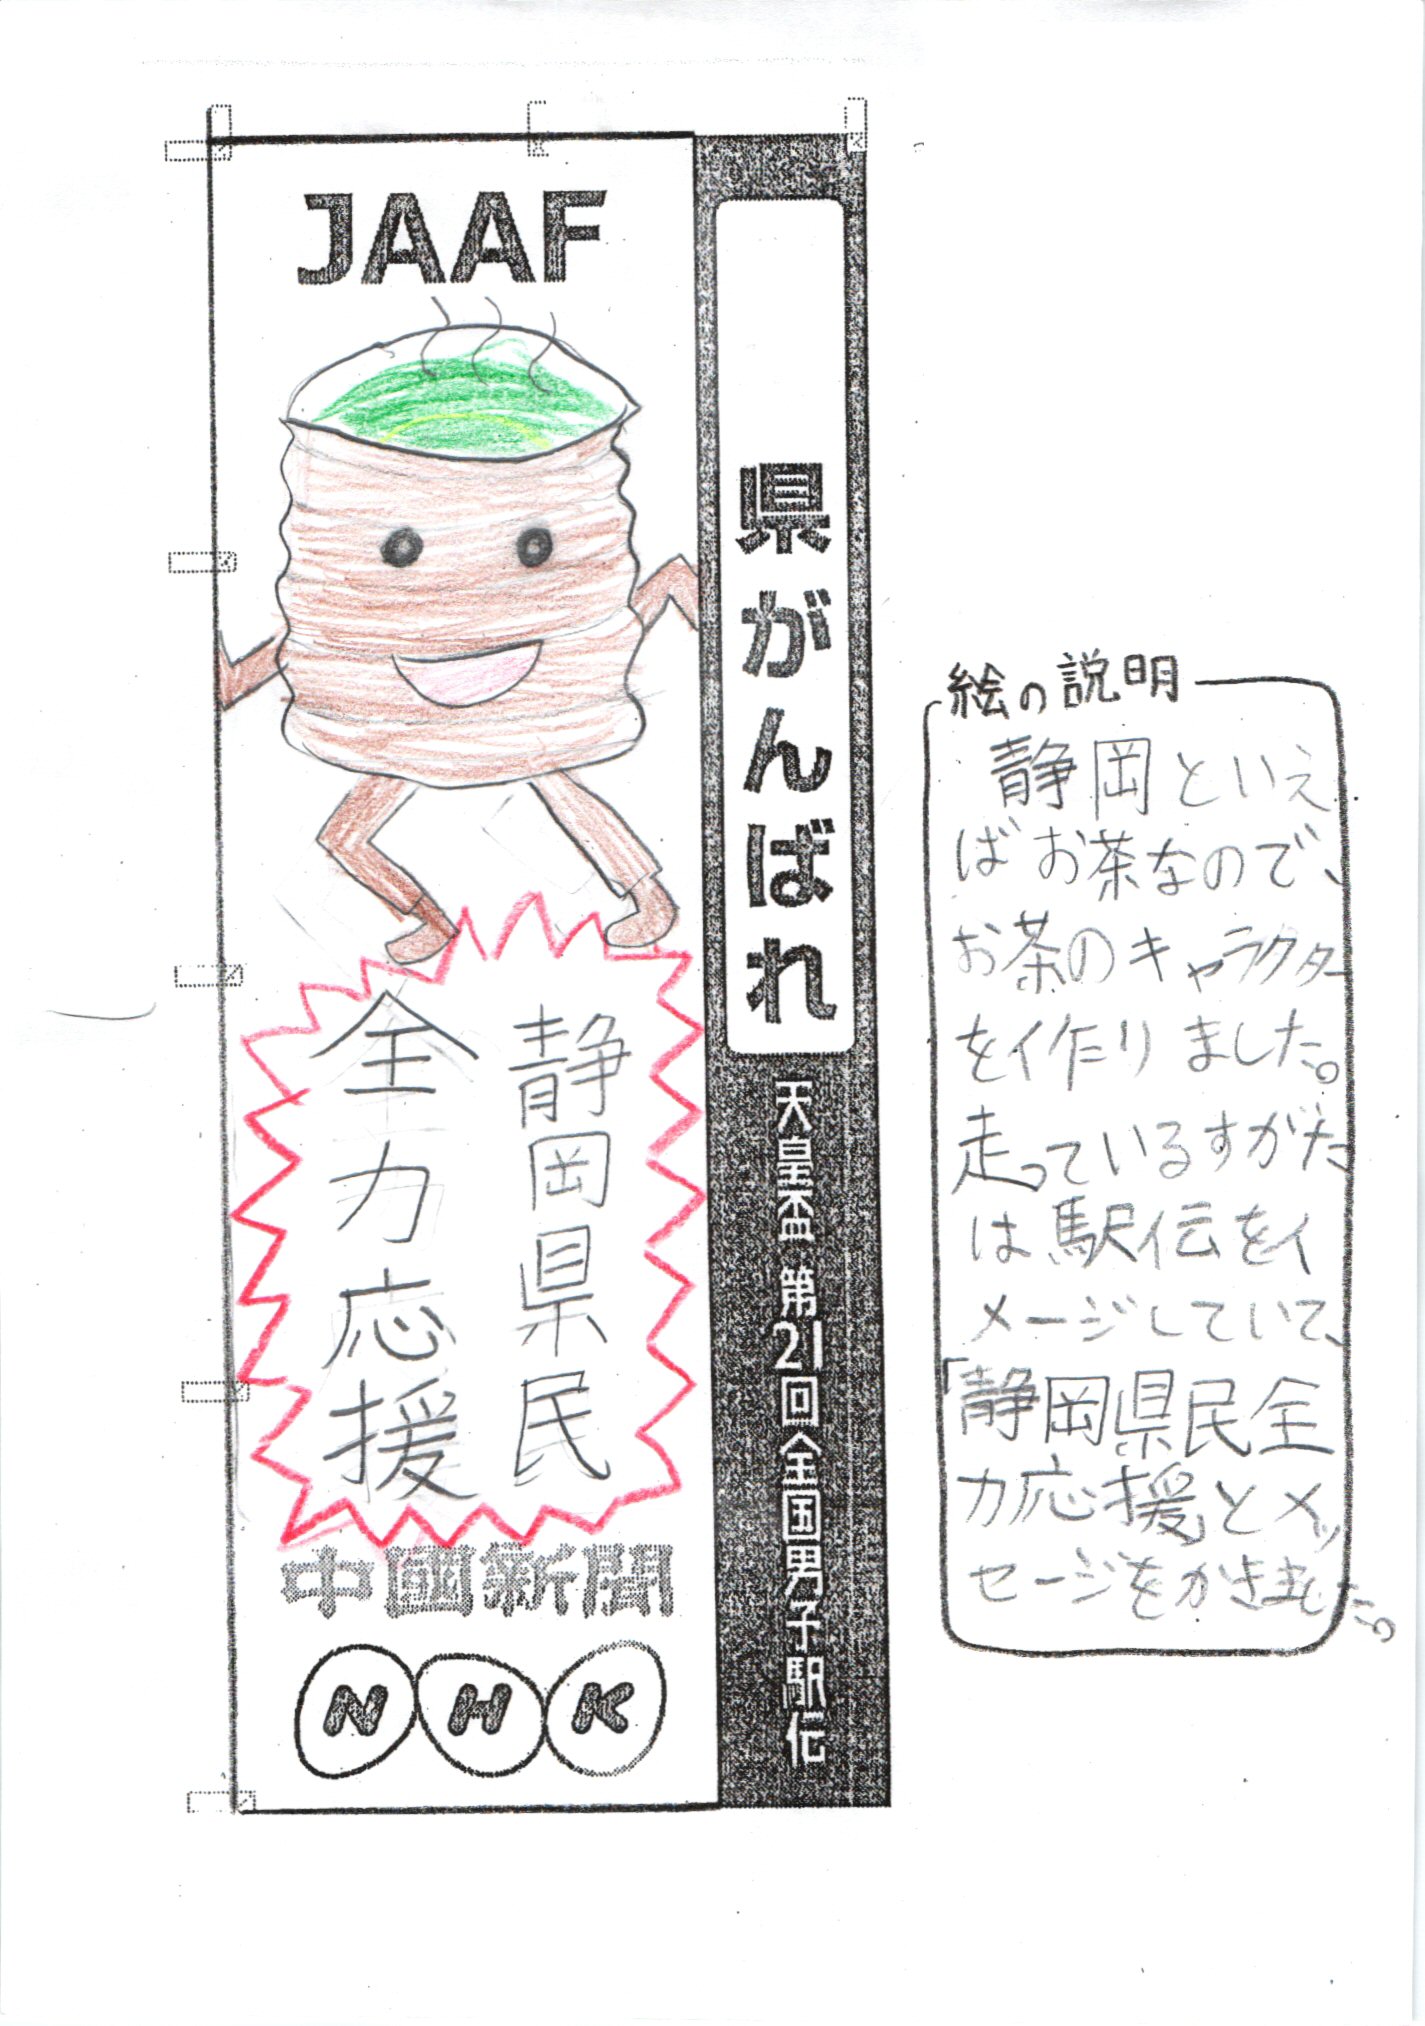 JAAF
県がんばれ
天皇盃 第21回全国男子駅伝
静岡県民
全力応援
中國新聞
NHK
絵の説明
静岡といえ
ばお茶なので、
お茶のキャラクター
を作りました。
走っているすがた
は駅伝をイ
メージしていて、
「静岡県民全
力応援」とメッ
セージをかきました。